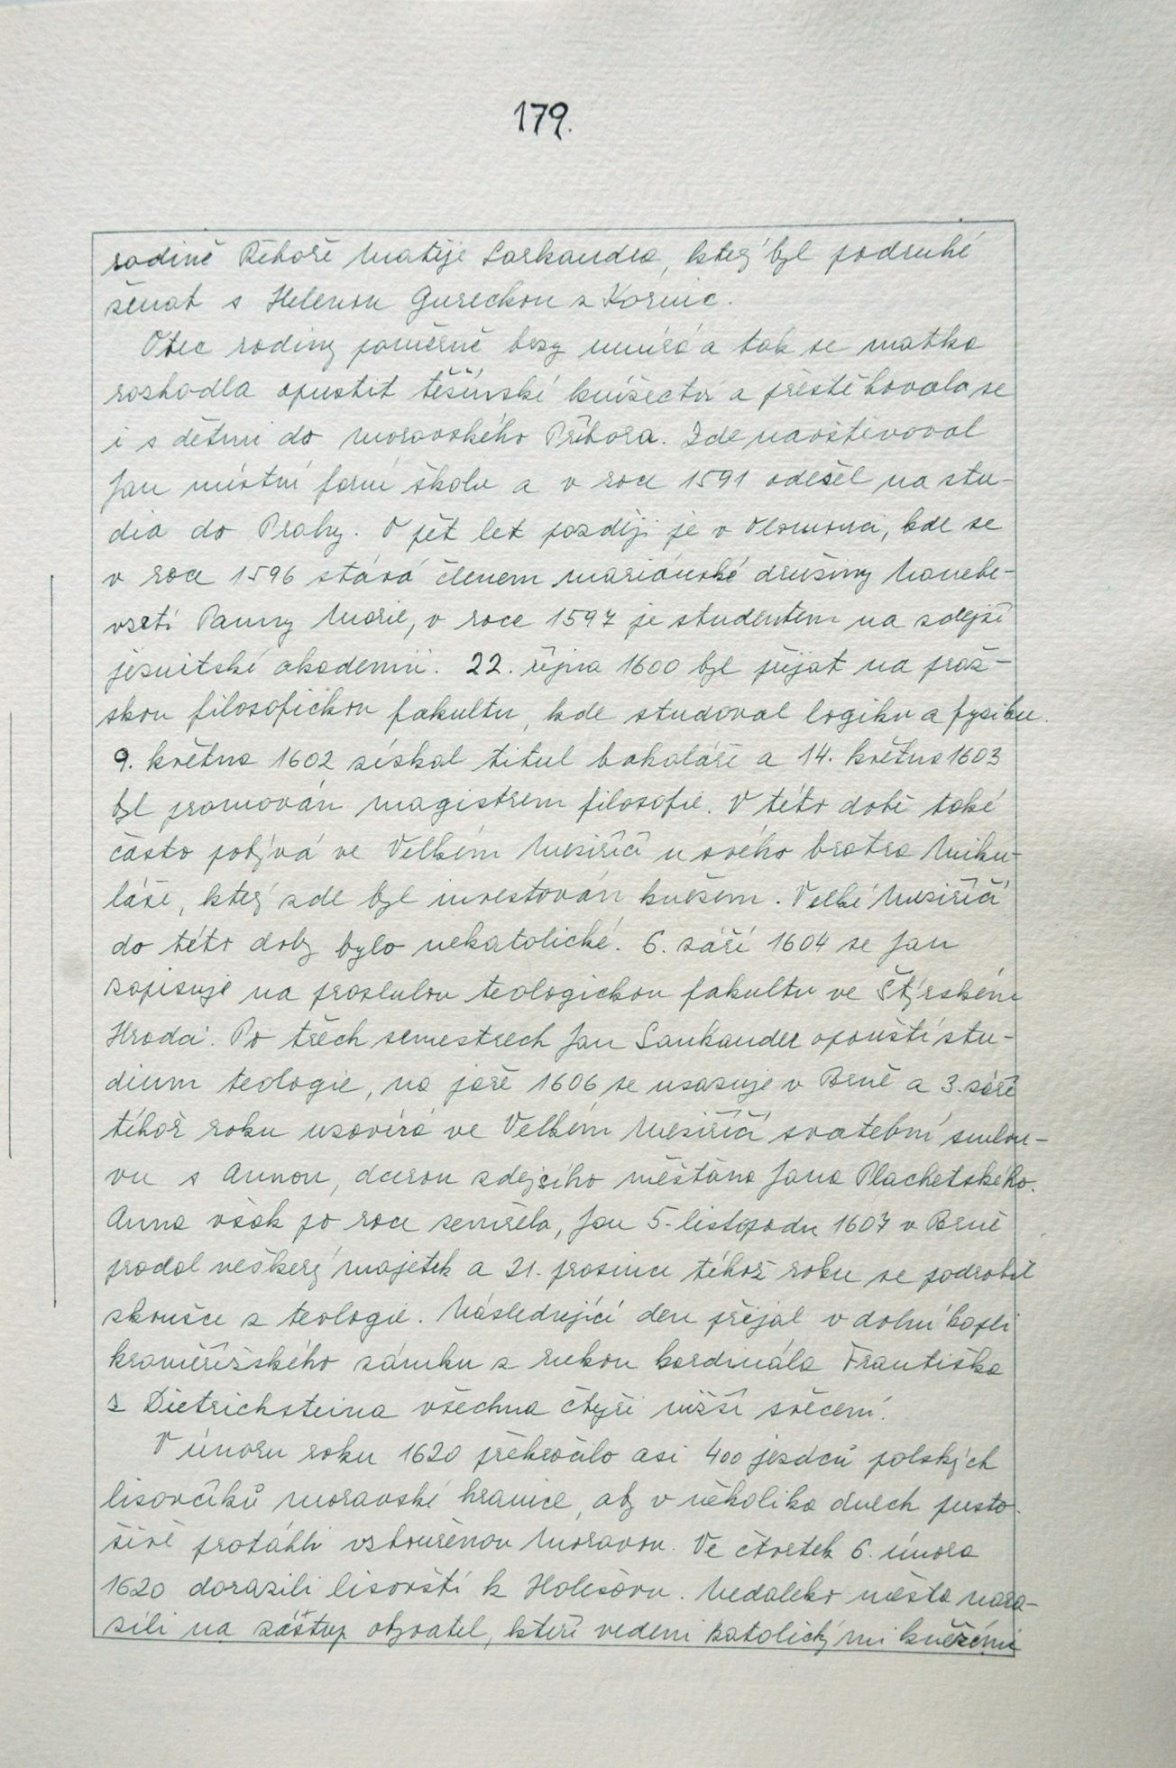 179.
rodině Řehoře Matěje Sarkandra, který byl podruhé
ženat s Helenou Gureckou z Kornic.
Otec rodiny poměrně brzy umírá a tak se matka
rozhodla opustit těšínské knížectví a přestěhovala se
i s dětmi do moravského Příbora. Zde navštěvoval
Jan místní farní školu a v roce 1591 odešel na stu-
dia do Prahy. O pět let později je v Olomouci, kde se
v roce 1596 stává členem mariánské družiny Nanebe-
vzetí Panny Marie, v roce 1597 je studentem na zdejší
jesuitské akademii. 22. října 1600 byl přijat na praž-
skou filosofickou fakultu, kde studoval logiku a fysiku.
9. května 1602 získal titul bakaláře a 14. května 1603
byl promován magistrem filosofie. V této době také
často pobývá ve Velkém Meziříčí u svého bratra Miku-
láše, který zde byl investován knězem. Velké Meziříčí
do této doby bylo nekatolické. 6. září 1604 se Jan
zapisuje na proslulou teologickou fakultu ve Štýrském
Hradci. Po třech semestrech Jan Sarkander opouští stu-
dium teologie, na jaře 1606 se usazuje v Brně a 3. září
téhož roku uzavírá ve Velkém Meziříčí svatební smlou-
vu s Annou, dcerou zdejšího měšťana Jana Plachetského.
Anna však po roce zemřela, Jan 5. listopadu 1607 v Brně
prodal veškerý majetek a 21. prosince téhož roku se podrobil
zkoušce z teologie. Následující den přijal v dolní kapli
kroměřížského zámku z rukou kardinála Františka
z Dietrichsteina všechna čtyři nižší svěcení.
V únoru roku 1620 překročilo asi 400 jezdců polských
lisovčíků moravské hranice, aby v několika dnech pusto-
šivě protáhli vzbouřenou Moravou. Ve čtvrtek 6. února
1620 dorazili lisovští k Holešovu. Nedaleko města nara-
zili na zástup obyvatel, kteří vedeni katolickými kněžími